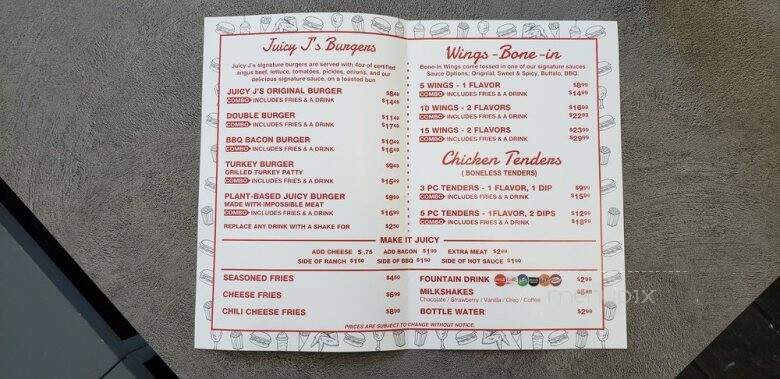 Juicy J's Burgers
Juicy J's signature burgers are served with 4oz of certified
angus beef, lettuce, tomatoes, pickles, onions, and our
delicious signature sauce, on a toasted bun
JUICY J'S ORIGINAL BURGER $8.49
COMBO INCLUDES FRIES & A DRINK $14.49
DOUBLE BURGER $11.49
COMBO INCLUDES FRIES & A DRINK $17.49
BBQ BACON BURGER $10.49
COMBO INCLUDES FRIES & A DRINK $16.49
TURKEY BURGER $9.49
GRILLED TURKEY PATTY
COMBO INCLUDES FRIES & A DRINK $15.49
PLANT-BASED JUICY BURGER $9.99
MADE WITH IMPOSSIBLE MEAT
COMBO INCLUDES FRIES & A DRINK $16.99
REPLACE ANY DRINK WITH A SHAKE FOR $2.50
Wings - Bone - in
Bone-In Wings come tossed in one of our signature sauces
Sauce Options: Orignial, Sweet & Spicy, Buffalo, BBQ.
5 WINGS - 1 FLAVOR $8.99
COMBO INCLUDES FRIES & A DRINK $14.99
10 WINGS - 2 FLAVORS $16.99
COMBO INCLUDES FRIES & A DRINK $22.99
15 WINGS - 2 FLAVORS $23.99
COMBO INCLUDES FRIES & A DRINK $29.99
Chicken Tenders
( BONELESS TENDERS)
3 PC TENDERS - 1 FLAVOR, 1 DIP $9.99
COMBO INCLUDES FRIES & A DRINK $15.90
5 PC TENDERS - 1FLAVOR, 2 DIPS $12.90
COMBO INCLUDES FRIES & A DRINK $18.90
MAKE IT JUICY
ADD CHEESE $ .75 ADD BACON $1.99 EXTRA MEAT $2.99
SIDE OF RANCH $1.50 SIDE OF BBQ $1.50 SIDE OF HOT SAUCE $1.50
SEASONED FRIES $4.50
CHEESE FRIES $6.99
CHILI CHEESE FRIES $8.99
FOUNTAIN DRINK $2.99
MILKSHAKES $5.49
Chocolate / Strawberry / Vanilla / Oreo / Coffee
BOTTLE WATER $2.99
PRICES ARE SUBJECT TO CHANGE WITHOUT NOTICE.
menupix